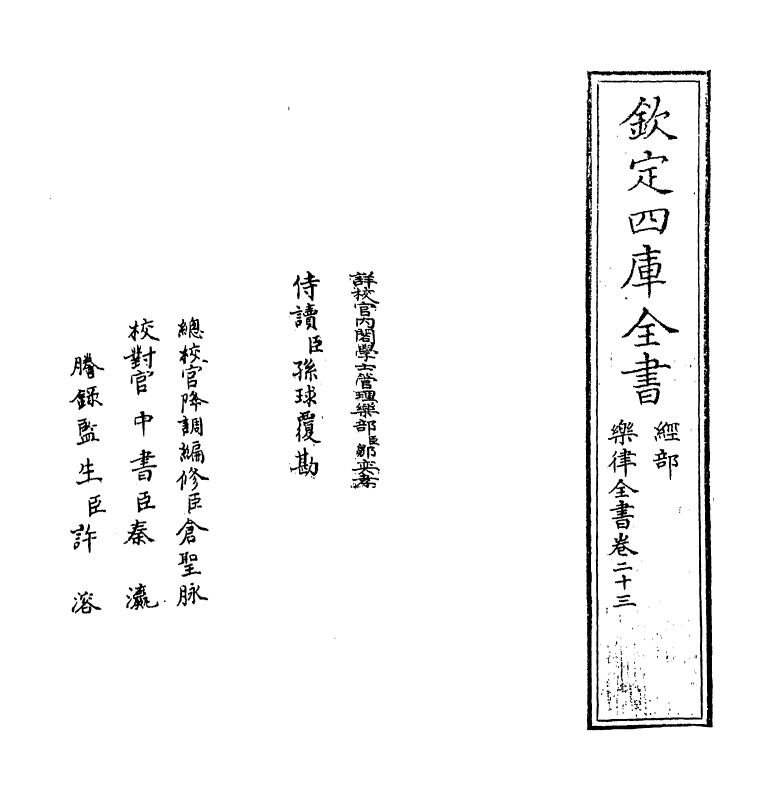 欽定四庫全書
經部
樂律全書卷二十三
詳校官內閣學士管理樂部臣鄒奕孝
侍讀臣孫球覆勘
總校官降調編修臣倉聖脉
校對官中書臣秦瀛
謄錄監生臣許溶